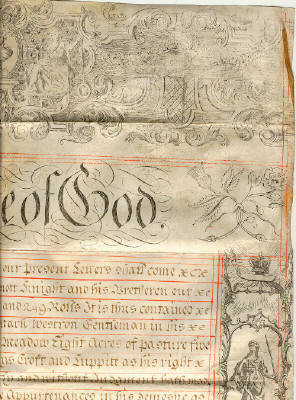 e of God.
our Present Letters shall come &c
not Knight and his Brethren our
and 249 Rolls It is thus contained
mark Westron Gentleman in his
Meadow Eight Acres of Pasture five
Croft and Luppitt as his right
and without Judgment hath
Appurtenances in his demesne as